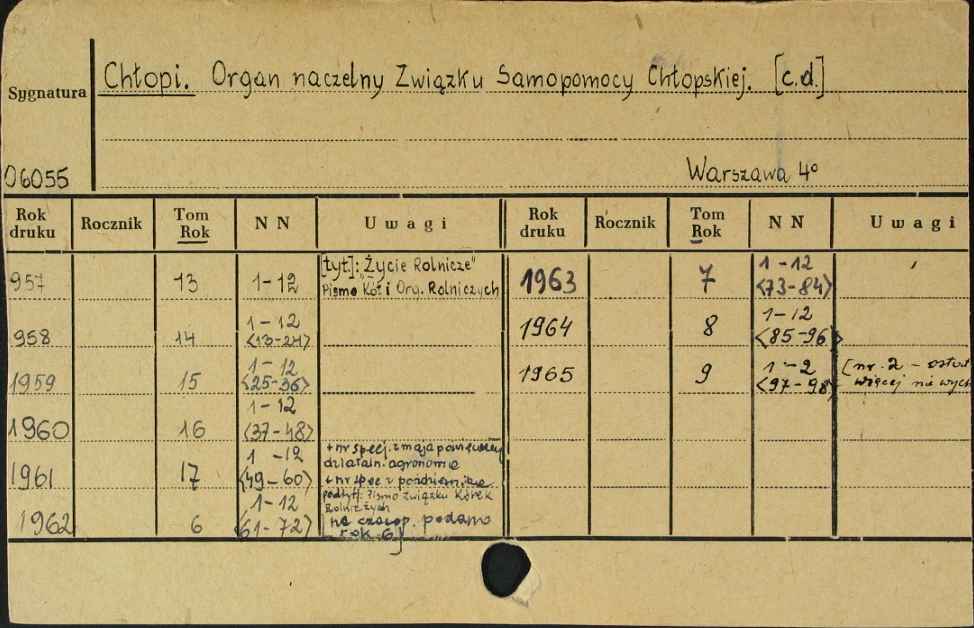 Chłopi. Organ naczelny Związku Samopomocy Chłopskiej. [c.d.]
Sygnatura
06055
Warszawa 4°
Rok druku Rocznik Tom Rok NN Uwagi Rok druku Rocznik Tom Rok NN Uwagi
957 13 1-12 [tyt]: "Życie Rolnicze"
Pismo Kół i Org. Rolniczych
958 14 1-12
<13-24>
1959 15 1-12
<25-36>
1960 16 1-12
<37-48>
1961 17 1-12
<49-60>
+ nr specj. z maja poświęcony
działaln. agronomie
+ nr spec z październike
podtyt: Pismo Związku Kółek
Rolniczych
1962 6 1-12
<61-72>
[na czasop. podano
rok 6]
1963 7 1-12
<73-84>
1964 8 1-12
<85-96>
1965 9 1-2
<97-98>
[nr. 2 - ostat
więcej nie wych